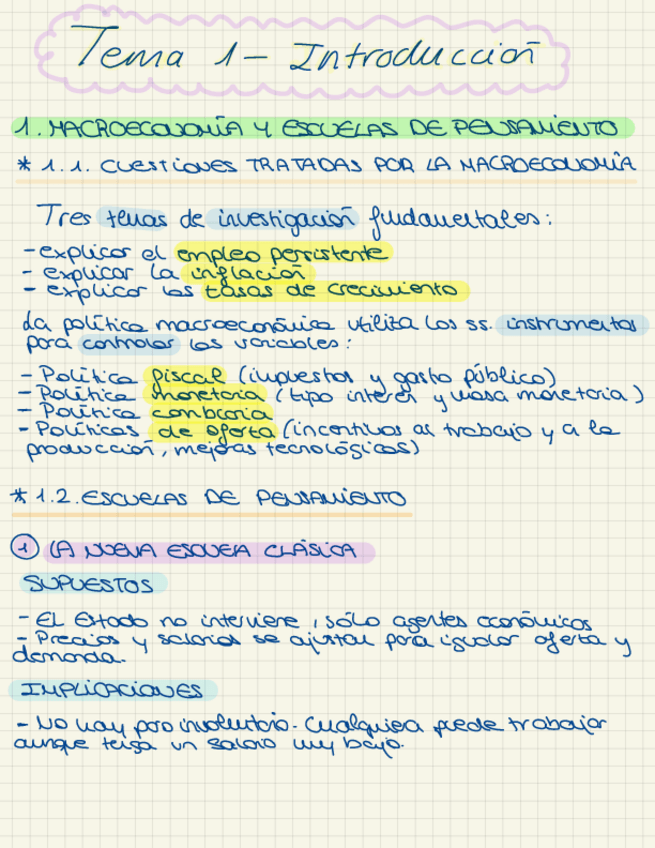 Tema 1 - Introducción
1. MACROECONOMÍA Y ESCUELAS DE PENSAMIENTO
* 1.1. CUESTIONES TRATADAS POR LA MACROECONOMÍA
Tres temas de investigación fundamentales:
- explicar el empleo persistente
- explicar la inflación
- explicar las tasas de crecimiento
La política macroeconómica utiliza los ss. instrumentos
para controlar las variables:
- Política fiscal (impuestos y gasto público)
- Política monetaria (tipo interés y masa monetaria)
- Política cambiaria
- Políticas de oferta (incentivos al trabajo y a la
producción, mejoras tecnológicas)
* 1.2. ESCUELAS DE PENSAMIENTO
1 LA NUEVA ESCUELA CLÁSICA
SUPUESTOS
- El Estado no interviene, sólo agentes económicos
- Precios y salarios se ajustan para igualar oferta y
demanda.
IMPLICACIONES
- No hay paro involuntario. Cualquiera puede trabajar
aunque tenga un salario muy bajo.